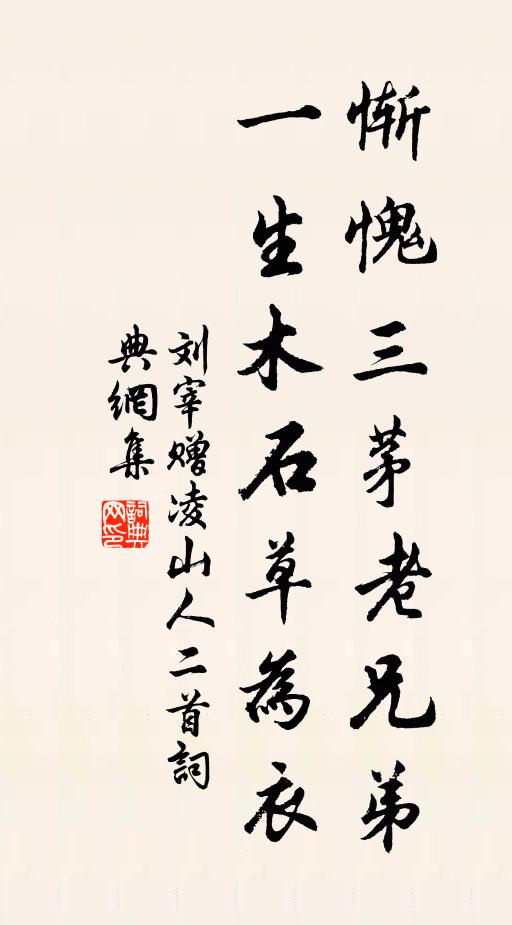 惭愧三茅老兄弟
一生木石草為衣
刘宰赠凌山人二首詞
典網集
詞典网印